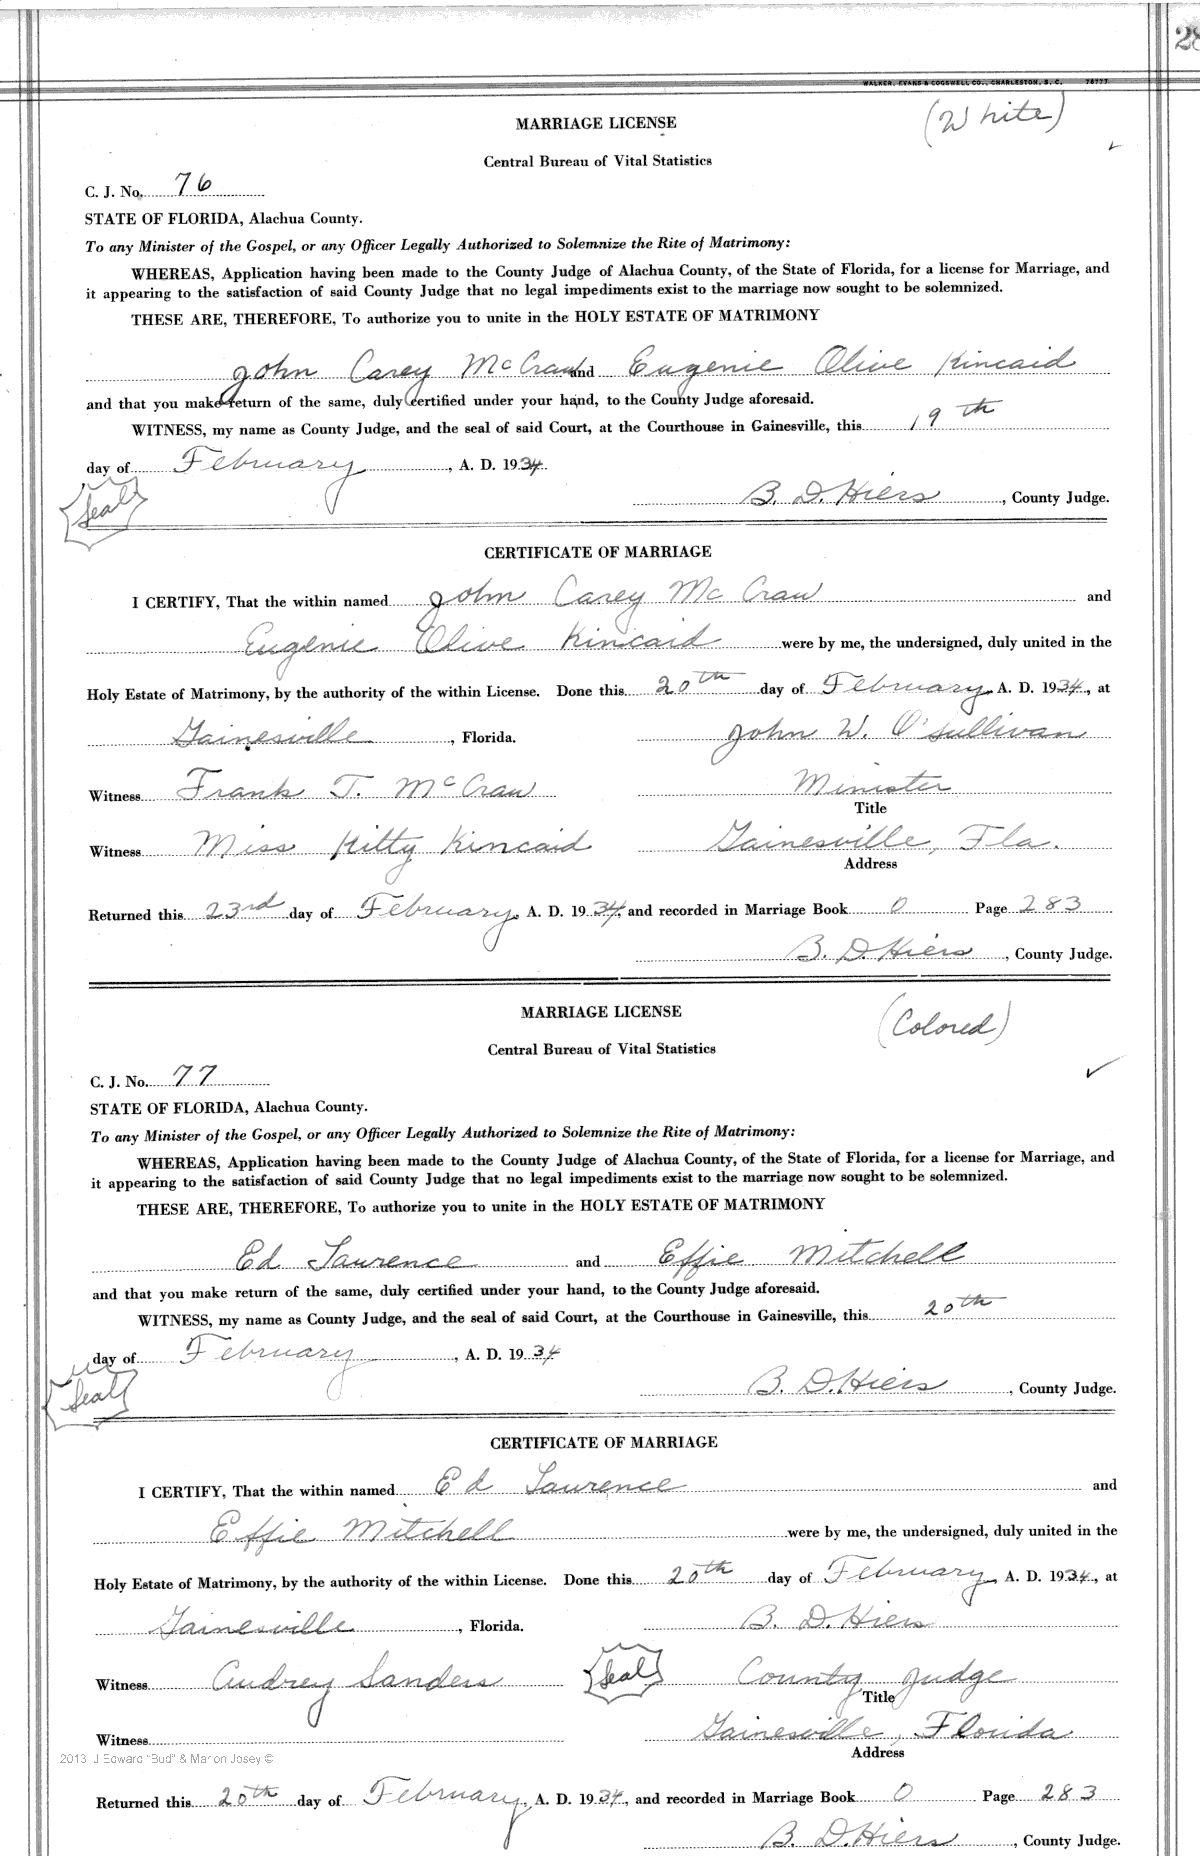 28
WALKER, EVANS & COGSWELL CO., CHARLESTON, S. C. 78777
(White)
MARRIAGE LICENSE
Central Bureau of Vital Statistics
C. J. No. 76
STATE OF FLORIDA, Alachua County.
To any Minister of the Gospel, or any Officer Legally Authorized to Solemnize the Rite of Matrimony:
WHEREAS, Application having been made to the County Judge of Alachua County, of the State of Florida, for a license for Marriage, and
it appearing to the satisfaction of said County Judge that no legal impediments exist to the marriage now sought to be solemnized.
THESE ARE, THEREFORE, To authorize you to unite in the HOLY ESTATE OF MATRIMONY
John Carey McCraw and Eugenie Olive Kincaid
and that you make return of the same, duly certified under your hand, to the County Judge aforesaid.
WITNESS, my name as County Judge, and the seal of said Court, at the Courthouse in Gainesville, this 19th
day of February, A. D. 1934.
Seal B. D. Hiers, County Judge.
CERTIFICATE OF MARRIAGE
I CERTIFY, That the within named John Carey McCraw and
Eugenie Olive Kincaid were by me, the undersigned, duly united in the
Holy Estate of Matrimony, by the authority of the within License. Done this 20th day of February A. D. 1934, at
Gainesville, Florida. John W. O'Sullivan
Witness Frank T. McCraw Minister
Title
Witness Miss Kitty Kincaid Gainesville, Fla.
Address
Returned this 23rd day of February, A. D. 1934, and recorded in Marriage Book O Page 283
B. D. Hiers, County Judge.
MARRIAGE LICENSE (Colored)
Central Bureau of Vital Statistics
C. J. No. 77 ✓
STATE OF FLORIDA, Alachua County.
To any Minister of the Gospel, or any Officer Legally Authorized to Solemnize the Rite of Matrimony:
WHEREAS, Application having been made to the County Judge of Alachua County, of the State of Florida, for a license for Marriage, and
it appearing to the satisfaction of said County Judge that no legal impediments exist to the marriage now sought to be solemnized.
THESE ARE, THEREFORE, To authorize you to unite in the HOLY ESTATE OF MATRIMONY
Ed Laurence and Effie Mitchell
and that you make return of the same, duly certified under your hand, to the County Judge aforesaid.
WITNESS, my name as County Judge, and the seal of said Court, at the Courthouse in Gainesville, this 20th
day of February, A. D. 1934
Seal B. D. Hiers, County Judge.
CERTIFICATE OF MARRIAGE
I CERTIFY, That the within named Ed Laurence and
Effie Mitchell were by me, the undersigned, duly united in the
Holy Estate of Matrimony, by the authority of the within License. Done this 20th day of February, A. D. 1934, at
Gainesville, Florida. B. D. Hiers
Witness Audrey Sanders Seal County Judge
Title
Witness Gainesville, Florida
2013 J Edward "Bud" & Marion Josey © Address
Returned this 20th day of February, A. D. 1934, and recorded in Marriage Book O Page 283
B. D. Hiers, County Judge.